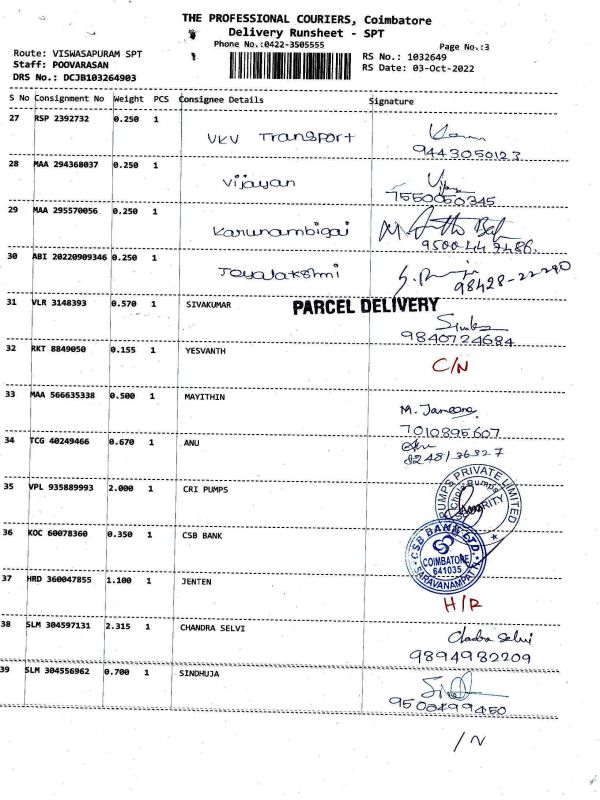 THE PROFESSIONAL COURIERS, Coimbatore
Delivery Runsheet - SPT
Phone No.:0422-3505555
Page No.:3
Route: VISWASAPURAM SPT
Staff: POOVARASAN
DRS No.: DCJB103264903
RS No.: 1032649
RS Date: 03-Oct-2022
S No Consignment No Weight PCS Consignee Details Signature
27 RSP 2392732 0.250 1 VKV Transport
9443050123
28 MAA 294368037 0.250 1 Vijayan
7550050345
29 MAA 295570056 0.250 1 Karunambigai
9500447486.
30 ABI 20220909346 0.250 1 Joyalakshmi
98428-22290
31 VLR 3148393 0.570 1 SIVAKUMAR PARCEL DELIVERY
9840724684
32 RKT 8849050 0.155 1 YESVANTH C/N
33 MAA 566635338 0.500 1 MAYITHIN
7010895607
34 TCG 40249466 0.670 1 ANU
8248136827
35 VPL 935889993 2.000 1 CRI PUMPS
PUMPS PRIVATE LIMITED
36 KOC 60078360 0.350 1 CSB BANK
CSB BANK LTD.
COIMBATORE
641035
SARAVANAMPATTI
37 HRD 360047855 1.100 1 JENTEN H/R
38 SLM 304597131 2.315 1 CHANDRA SELVI
9894982209
39 SLM 304556962 0.700 1 SINDHUJA
9500499450
/N